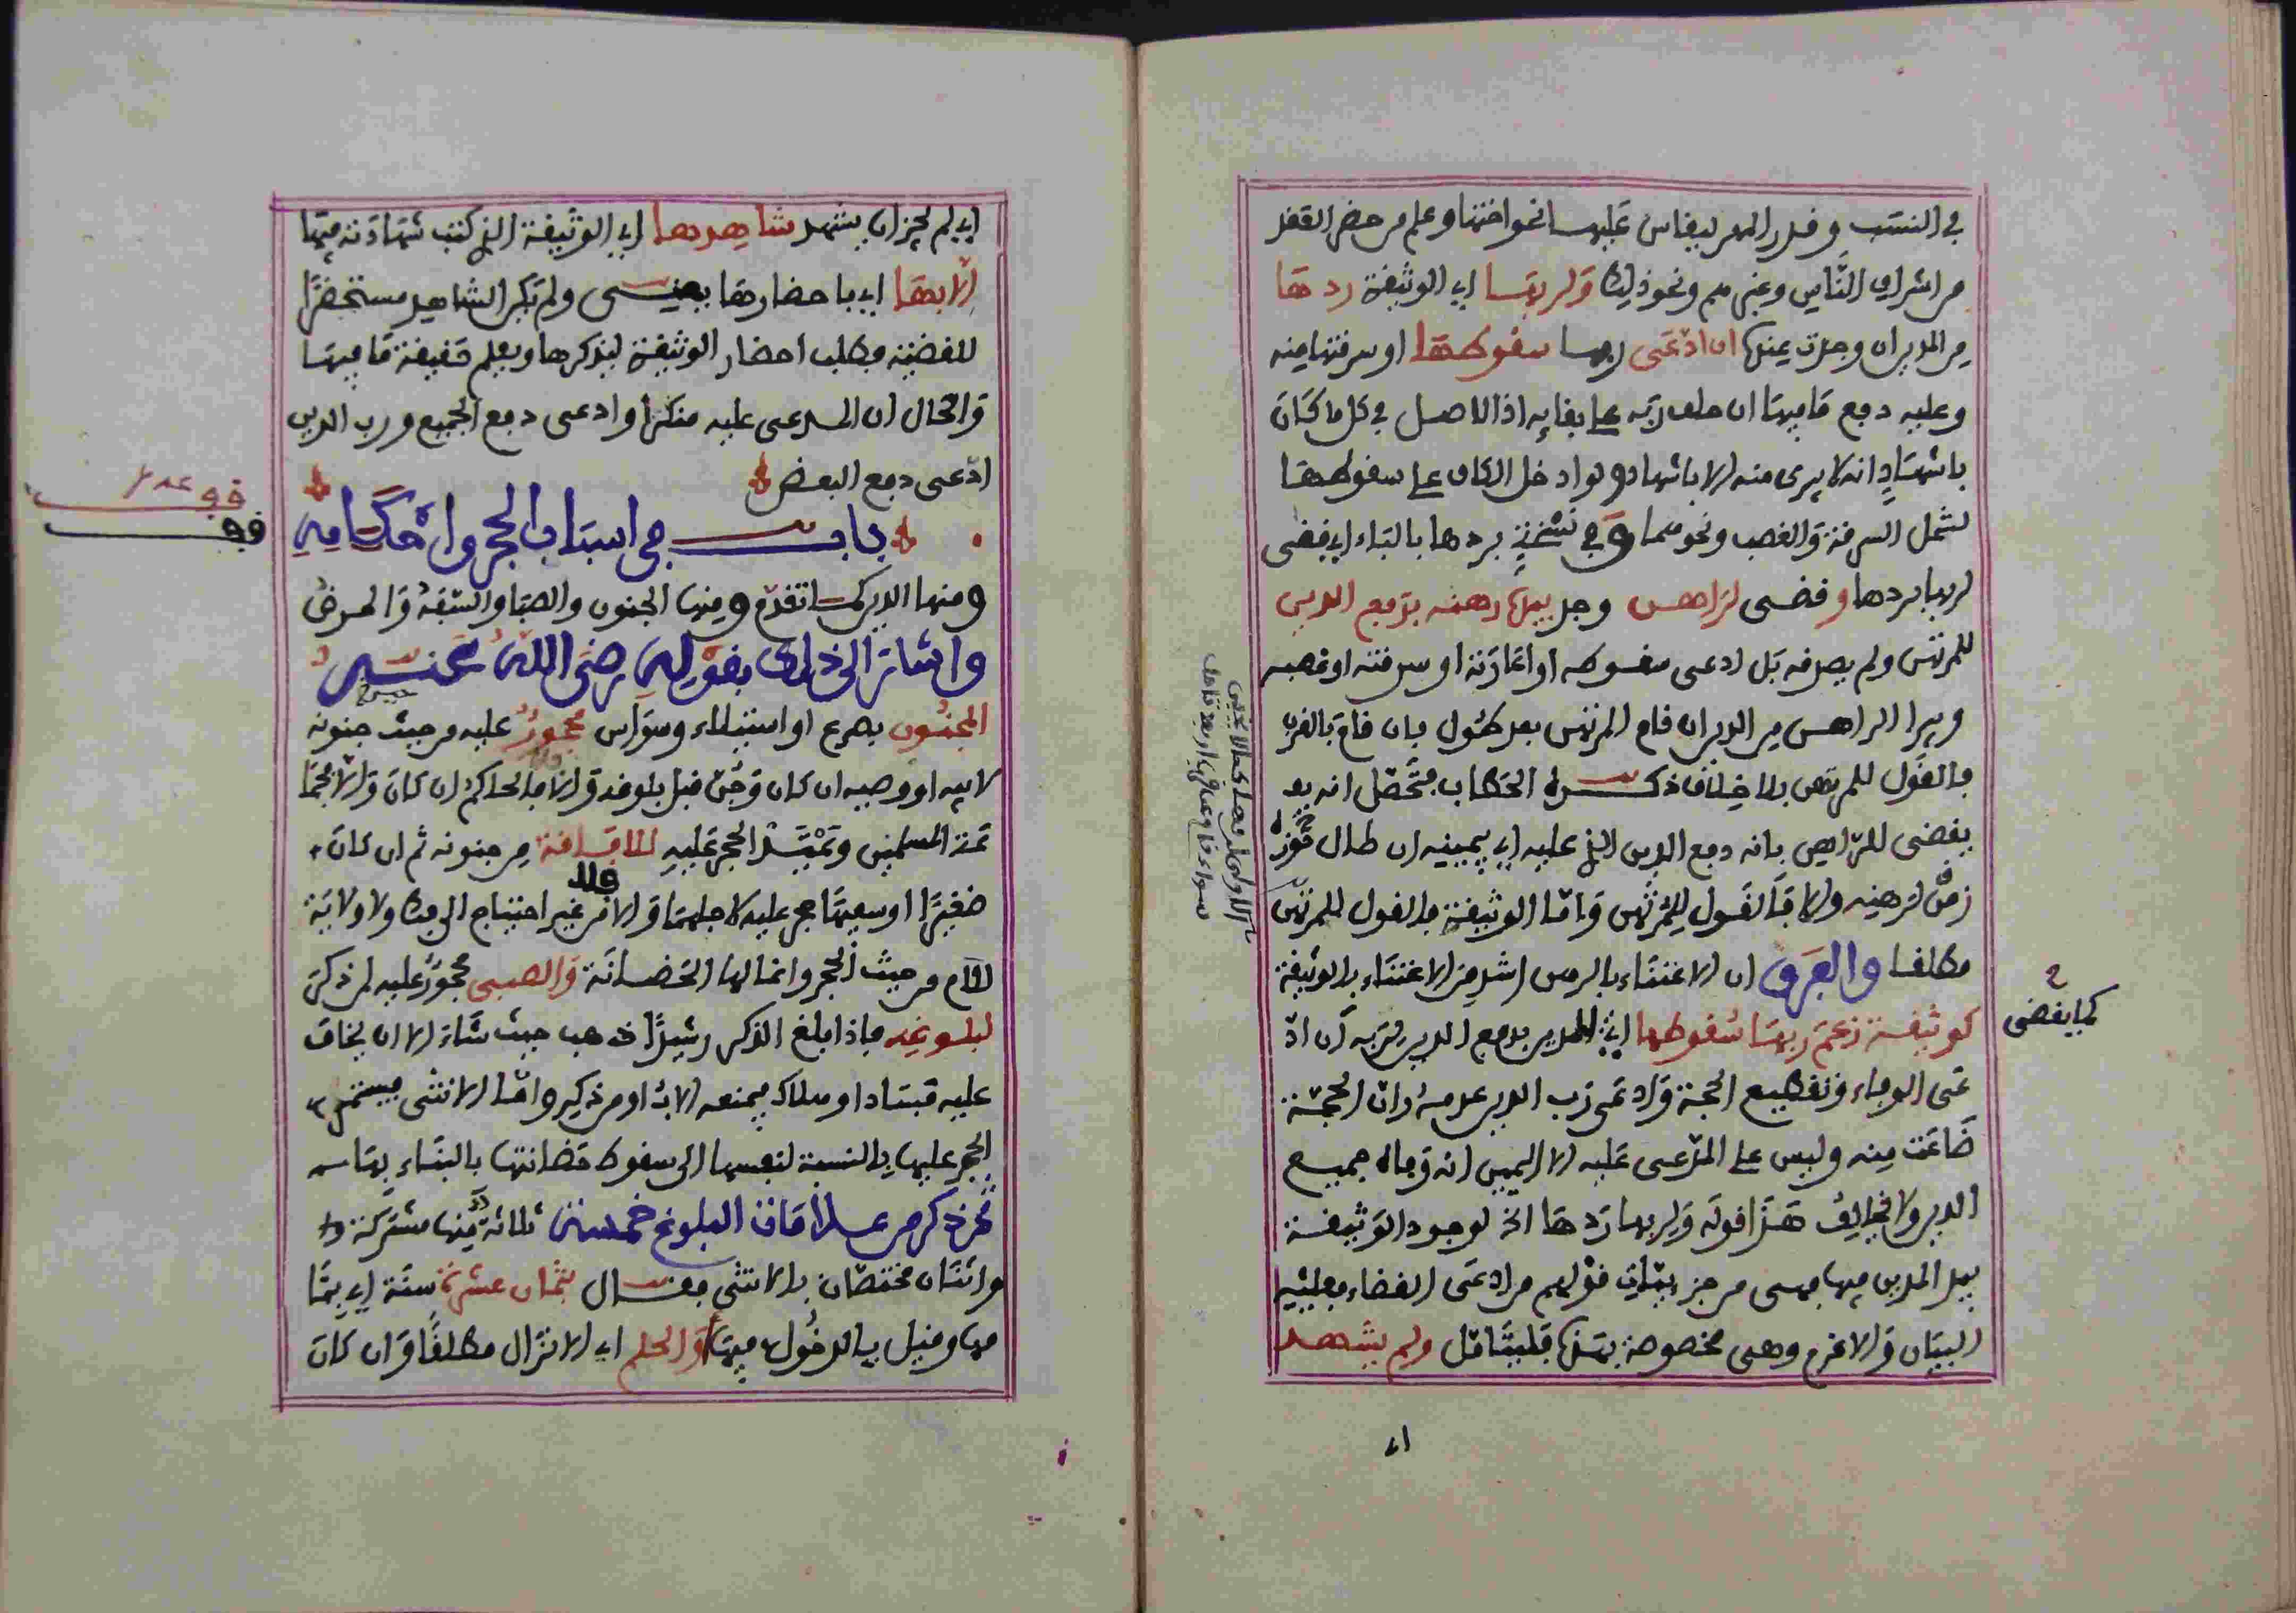 في النسب وقدر المهر ليقاس عليها نحو اختها وعلم من حضر العقد
من اشراف الناس وغيرهم ونحو ذلك ولربها اي الوثيقة ردها
من المدين ان وجدت عنده ان ادعى ربها سقوطها او سرقتها منه
وعليه دفع ما فيها ان حلف ربه على بقايه اذ الاصل في كل ما كان
باشهاد انه لا يبرى منه الا باشهاد ولو ادخل الكاف على سقوطها
لشمل السرقة والغصب ونحوهما وفي نسخة بردها بالباء اي قضى
لربها بردها وقضى لراهن وجد بيده رهنه بدفع الدين
للمرتهن ولم يصدقه بل ادعى سقوطه او اعارته او سرقته او غصبه
ويبرا الراهن من الدين ان قام المرتهن بعد طول بان قام بالقرب
فالقول للمرتهن بلا خلاف ذكره الحطاب فتحصل انه
يقضى للراهن بانه دفع الدين الذي عليه اي بيمينه ان طال حوزه
زمن لرهنه والا فالقول للمرتهن واما الوثيقة فالقول للمرتهن
مطلقا والفرق ان الاعتناء بالرهن اشد من الاعتناء بالوثيقة
كوثيقة زعم ربها سقوطها اي المدين بدفع الدين لربه ان اد
عى الوفاء وتقطيع الحجة وادعى رب الدين عدمه وان الحجة
ضاعت منه وليس على المدعى عليه الا اليمين انه وفاه جميع
الدين ولا يخالف هذا قوله ولربها ردها الخ لوجود الوثيقة
بيد المدين فيها فهي من جزءيات قولهم من ادعى القضاء فعليه
البيان والا غرم وهي مخصوصة بهذا فليتامل ولم يشهد
كما يقضى
اي لم يجز ان يشهد شاهدها اي الوثيقة الذي كتب شهادته فيها
الا بها اي باحضارها بعينه ولم يكن الشاهد مستحضرا
للقضية فطلب احضار الوثيقة ليتذكرها ويعلم حقيقة ما فيها
والحال ان المدعى عليه منكرا وادعى دفع الجميع ورب الدين
ادعى دفع البعض
باب في اسباب الحجر واحكامه
ومنها الدين كما تقدم ومنها الجنون والصبا والسفه والمرض
واشار الى ذلك بقوله رضى الله عنه
المجنون بصرع او استيلاء وسواس محجور عليه من حيث جنونه
لابيه او وصيه ان كان وجن قبل بلوغه والا فالحاكم ان كان والا فجما
عة المسلمين ويمتد الحجر عليه للافاقة من جنونه ثم ان كان
صغيرا او سفيها حجر عليه لاجلهما والا فلا من غير احتياج الى فك ولا ولاية
للام من حيث الحجر وانما لها الحضانة والصبي محجور عليه لمن ذكر
لبلوغه فاذا بلغ الذكر رشيدا ذهب حيث شاء الا ان يخاف
عليه فسادا وهلاك فيمنعه الاب او من ذكر واما الانثى فيستمر
الحجر عليها بالنسبة لنفسها الى سقوط حضانتها بالبناء بها
ثم ذكر من علامات البلوغ خمسة ثلاثة منها مشتركة
واثنان مختصان بالانثى فقال بثمان عشرة سنة اي بتما
مها وقيل بالدخول فيها والحلم اي الانزال مطلقا وان كان